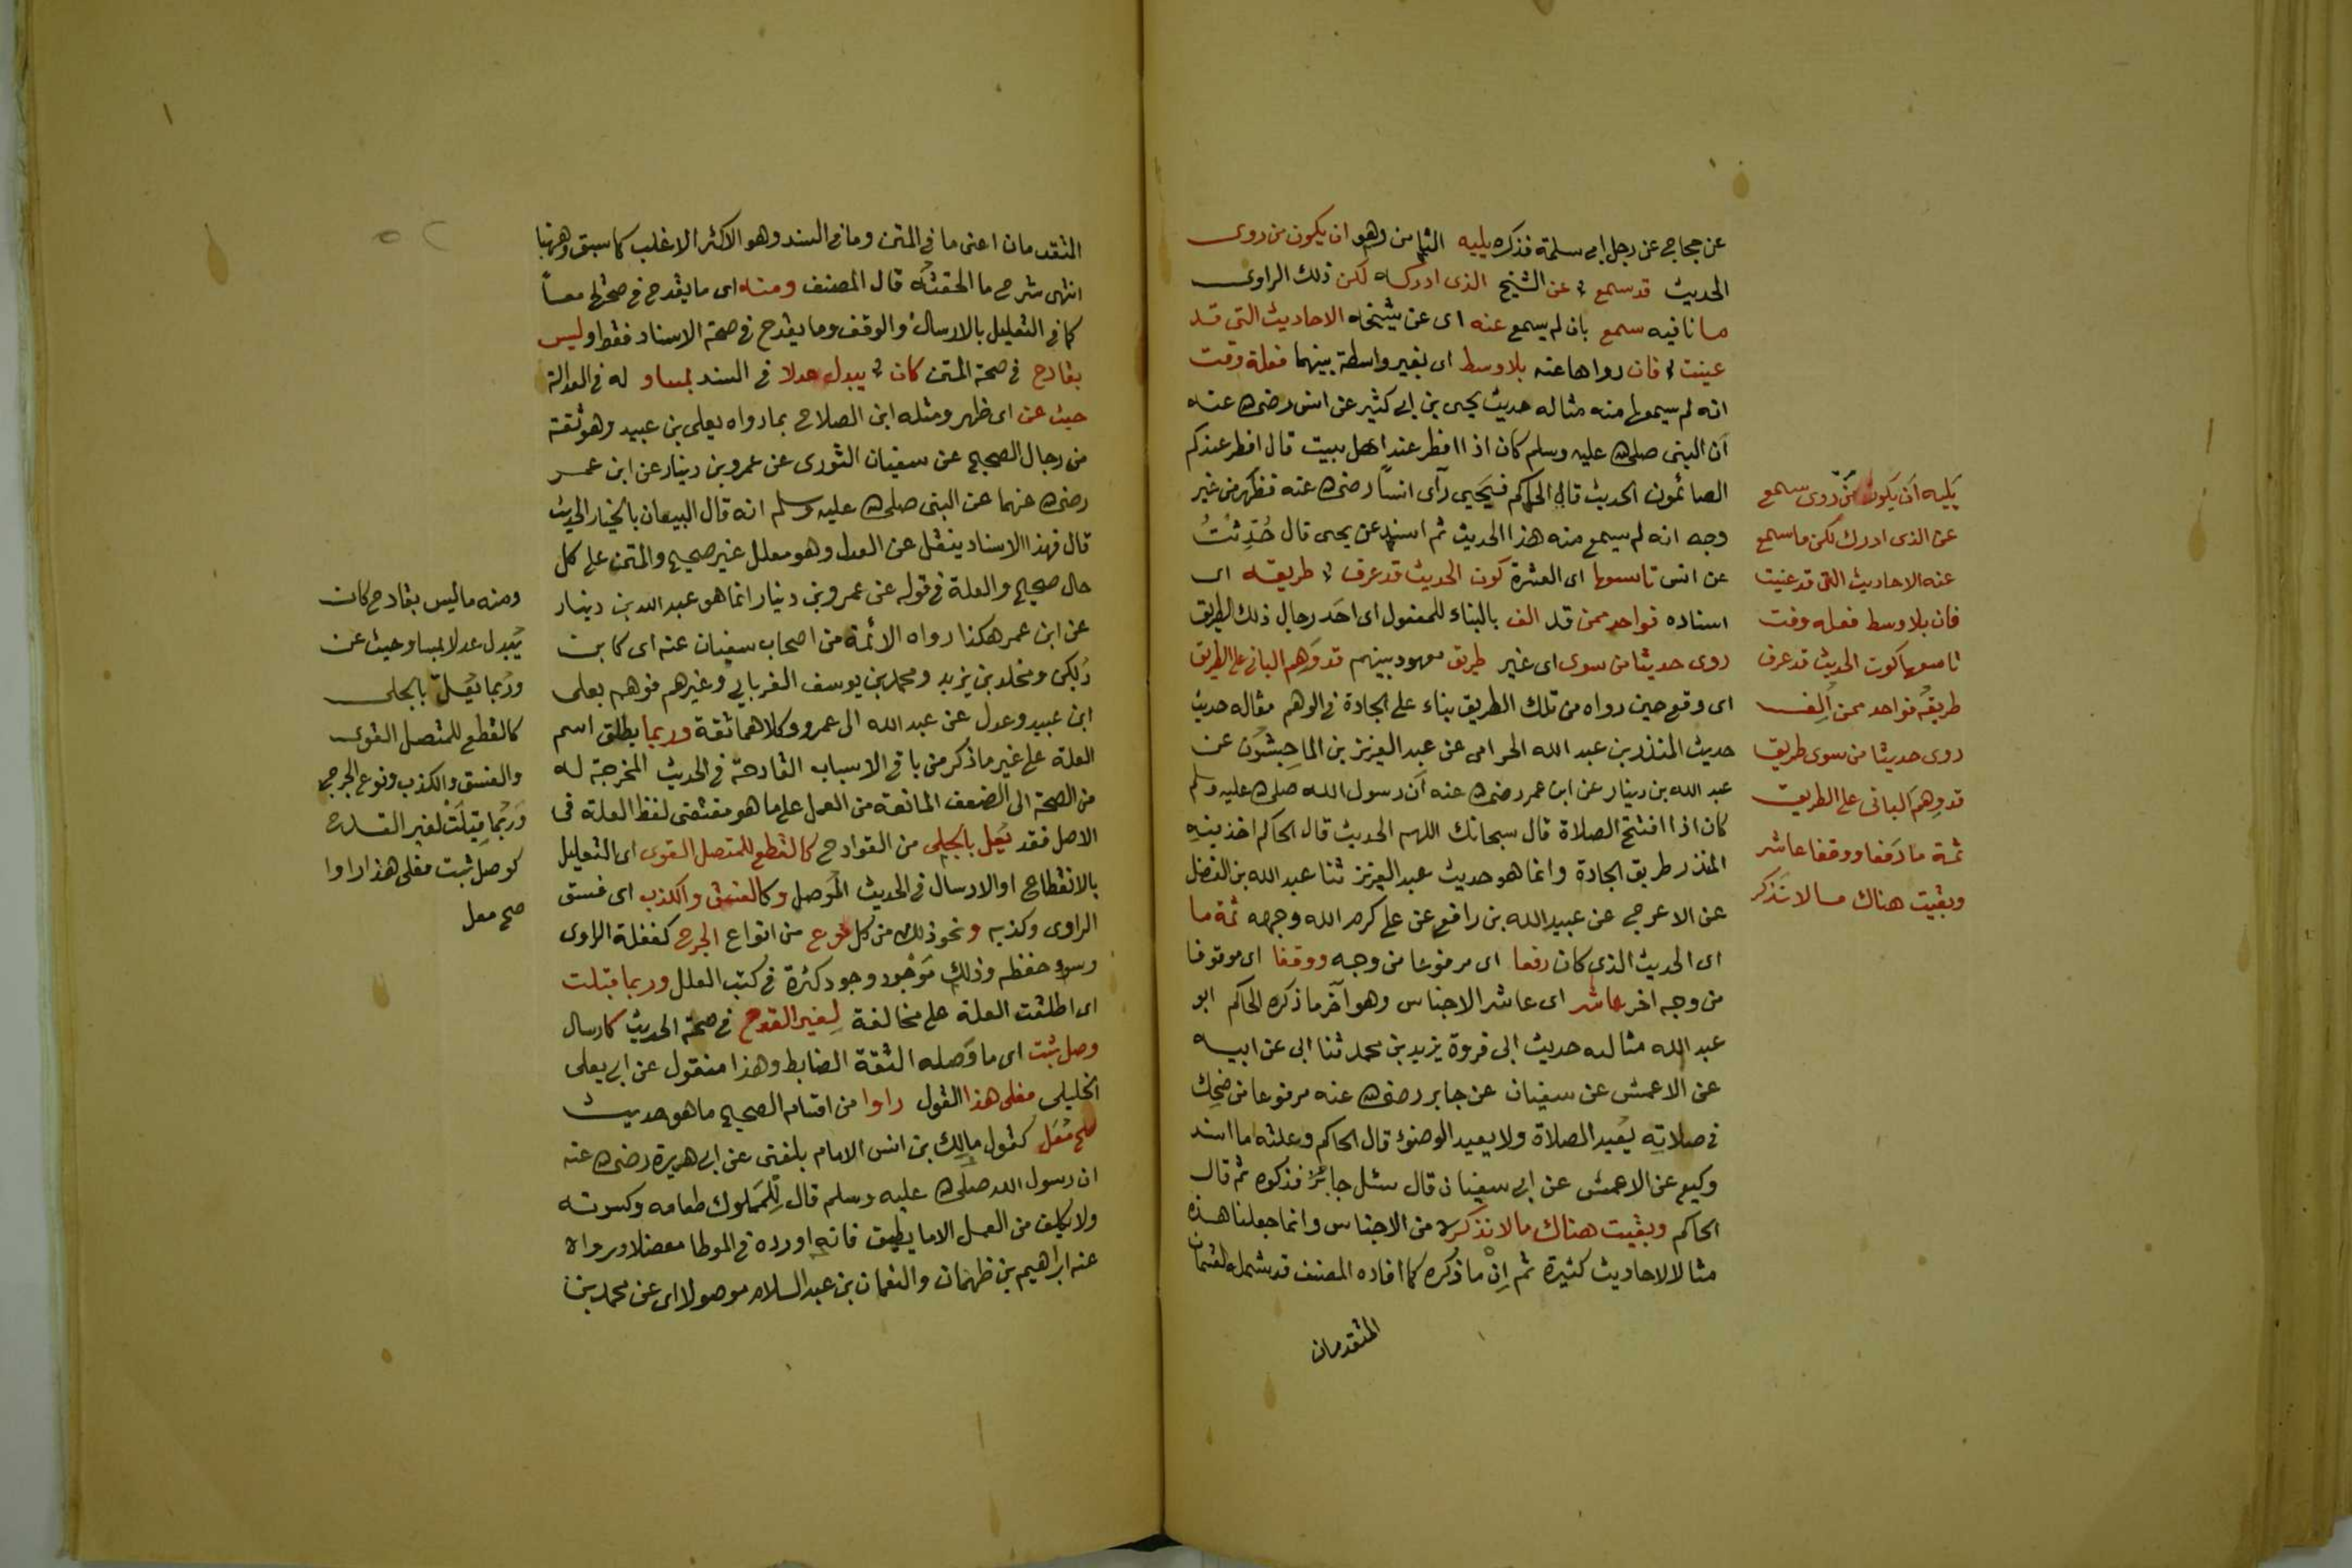 عن حجاج عن رجل ابى سلمة فذكره يليه الثامن وهو ان يكون من روى
الحديث قد سمع عن الشيخ الذى ادركه لكن ذلك الراوى
ما نافيه سمع بان لم يسمع عنه اى عن شيخه الاحاديث التى قد
عينت فان رواها عنه بلا وسط اى بغير واسطة بينهما فعلة وقت
انه لم يسمعها منه مثاله حديث يحيى بن ابى كثير عن انس رضى الله عنه
ان النبى صلى الله عليه وسلم كان اذا افطر عند اهل بيت قال افطر عندكم
الصائمون الحديث قال الحاكم فيحيى رآى انسا رضى الله عنه فظهر من غير
وجه انه لم يسمع منه هذا الحديث ثم اسند عن يحيى قال حُدِّثتُ
عن انس تاسعها اى العشرة كون الحديث قد عرف طريقه اى
اسناده فواحد ممن قد الف بالبناء للمفعول اى احد رجال ذلك الطريق
روى حديثا من سوى اى غير طريق معهود بينهم قد وهم البانى على الطريق
اى وقع حين رواه من تلك الطريق بناء على الجادة فى الوهم مثاله حديث
حديث المنذر بن عبد الله الحزامى عن عبد العزيز بن الماجشون عن
عبد الله بن دينار عن ابن عمر رضى الله عنه ان رسول الله صلى الله عليه وسلم
كان اذا افتتح الصلاة قال سبحانك اللهم الحديث قال الحاكم اخذ فيه
المنذر طريق الجادة وانما هو حديث عبد العزيز ثنا عبد الله بن الفضل
عن الاعرج عن عبيد الله بن رافع عن على كرم الله وجهه ثمة ما
اى الحديث الذى كان رفعا اى مرفوعا من وجه ووقفا اى موقوفا
من وجه اخر عاشر اى عاشر الاجناس وهو آخر ما ذكره الحاكم ابو
عبد الله مثاله حديث ابى فروة يزيد بن محمد ثنا ابى عن ابيه
عن الاعمش عن سفيان عن جابر رضى الله عنه مرفوعا من ضحك
فى صلاته يعيد الصلاة ولا يعيد الوضوء قال الحاكم وعلته ما اسند
وكيع عن الاعمش عن ابى سفيان قال سئل جابر فذكره ثم قال
الحاكم وبقيت هناك ما لا نذكره من الاجناس وانما جعلنا هذه
مثالا لاحاديث كثيرة ثم ان ما ذكره كما افاده المصنف قد شمله القسمان
المتقدمان
يليه ان يكون من روى سمع
عن الذى ادرك لكن ما سمع
عنه الاحاديث التى قد عينت
فان بلا وسط فعله وقت
تاسعها كون الحديث قد عرف
طريقه فواحد ممن اُلِف
روى حديثا من سوى طريق
قد وهم البانى على الطريق
ثمة ما رفعا ووقفا عاشر
وبقيت هناك ما لا تذكر
المتقدمان اعنى ما فى المتن وما فى السند وهو الاكثر الاغلب كما سبق وههنا
انتهى شرح ما الحقته قال المصنف ومنه اى ما يقدح فى صحتها معا
كما فى التعليل بالارسال والوقف وما يقدح فى صحة الاسناد فقط وليس
بقادح فى صحة المتن كان يبدل عدلا فى السند بمساو له فى العدالة
حيث عن اى ظهر ومثله ابن الصلاح بما رواه يعلى بن عبيد وهو ثقة
من رجال الصحيح عن سفيان الثورى عن عمرو بن دينار عن ابن عمر
رضى الله عنهما عن النبى صلى الله عليه وسلم انه قال البيعان بالخيار الحديث
قال فهذا الاسناد ينقل عن العدل وهو معلل غير صحيح والمتن على كل
حال صحيح والعلة فى قوله عن عمرو بن دينار انما هو عبد الله بن دينار
عن ابن عمر هكذا رواه الائمة من اصحاب سفيان عنه اى كابن
دكين ومخلد بن يزيد ومحمد بن يوسف الفريابى وغيرهم فوهم يعلى
ابن عبيد وعدل عن عبد الله الى عمرو وكلاهما ثقة وربما يطلق اسم
العلة على غير ما ذكر من باقى الاسباب القادحة فى الحديث المخرجة له
من الصحة الى الضعف المانعة من العمل على ما هو مقتضى لفظ العلة فى
الاصل فقد يُعل بالجلى من القوادح كالقطع للمتصل القوى اى التعليل
بالانقطاع او الارسال فى الحديث الموصل وكالفسق والكذب اى فسق
الراوى وكذبه ونحو ذلك من كل نوع من انواع الجرح كغفلة الراوى
وسوء حفظه وذلك موجود وجود كثرة فى كتب العلل وربما قبلت
اى اطلقت العلة على مخالفة لغير القدح فى صحة الحديث كارسال
وصل ثبت اى ما وصله الثقة الضابط وهذا منقول عن ابى يعلى
الخليلى فعلى هذا القول راوا من اقسام الصحيح ما هو حديث
صح مُعَل كقول مالك بن انس الامام بلغنى عن ابى هريرة رضى الله عنه
ان رسول الله صلى الله عليه وسلم قال للمملوك طعامه وكسوته
ولا يكلف من العمل الا ما يطيق فانه اورده فى الموطا معضلا ورواه
عنه ابراهيم بن طهمان والنعمان بن عبد السلام موصولا اى عن محمد بن
ومنه ما ليس بقادح كان
يبدل عدلا بمساو حيث عن
وربما يُعَلّ بالجلى
كالقطع للمتصل القوى
والفسق والكذب ونوع الجرح
وربما قيلت لغير القدح
كوصل ثبت فعلى هذا راوا
صح معل